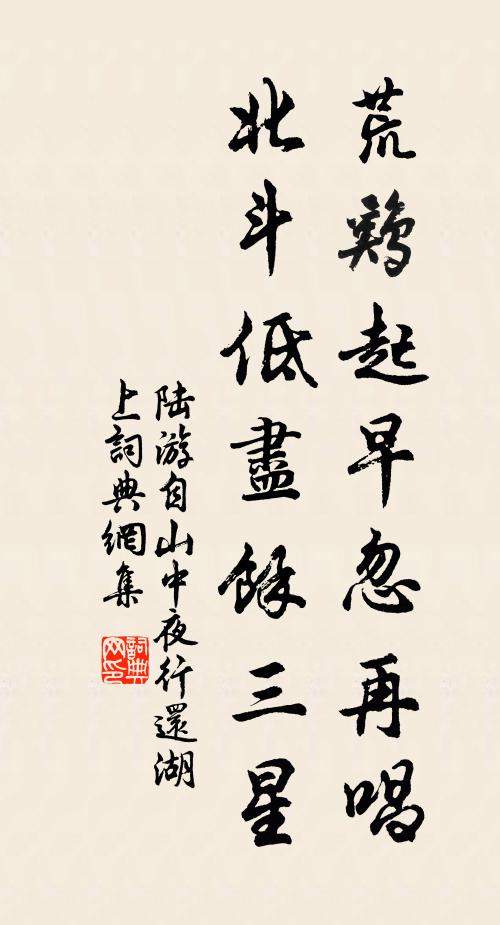 荒鷄起早忽再唱
北斗低盡餘三星
陆游自山中夜行還湖
上詞典網集
詞典
网印